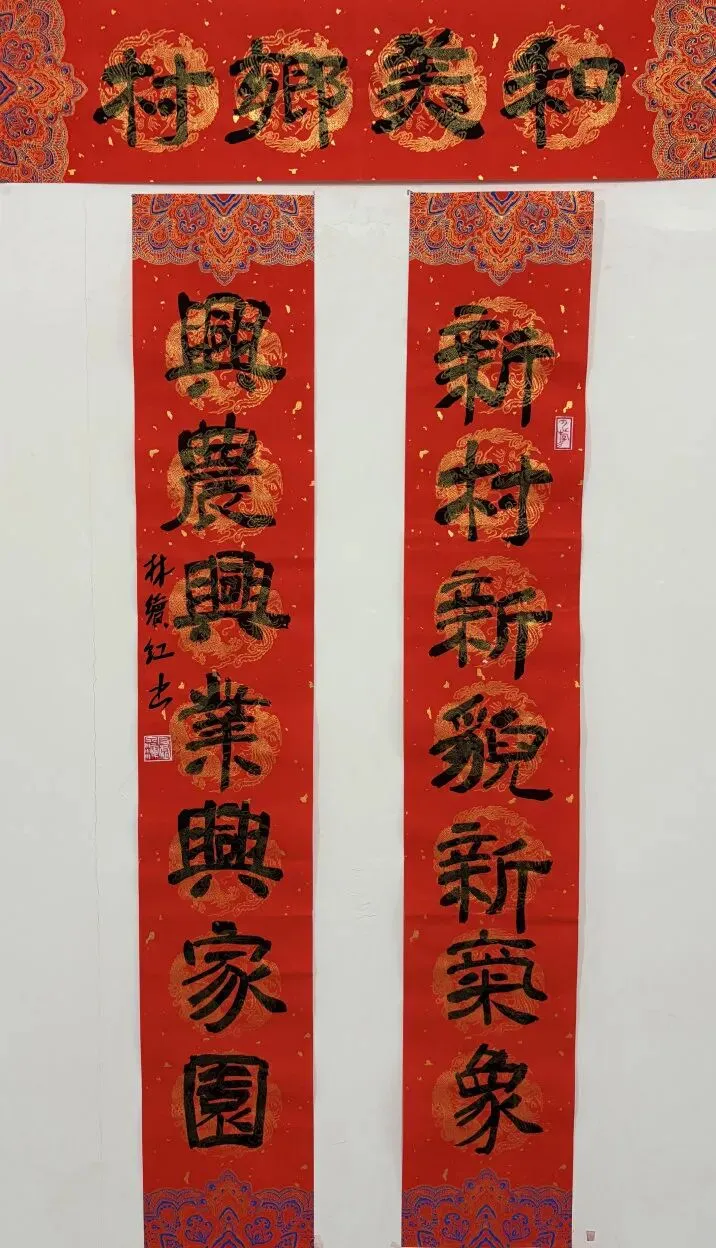 和美鄉村
新村新貌新氣象
興農興業興家園
林賓紅书